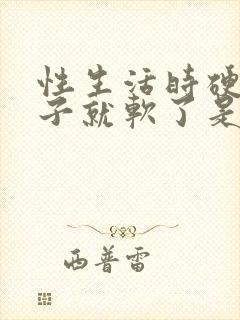 性生活时硬
子就軟了是
西普雷